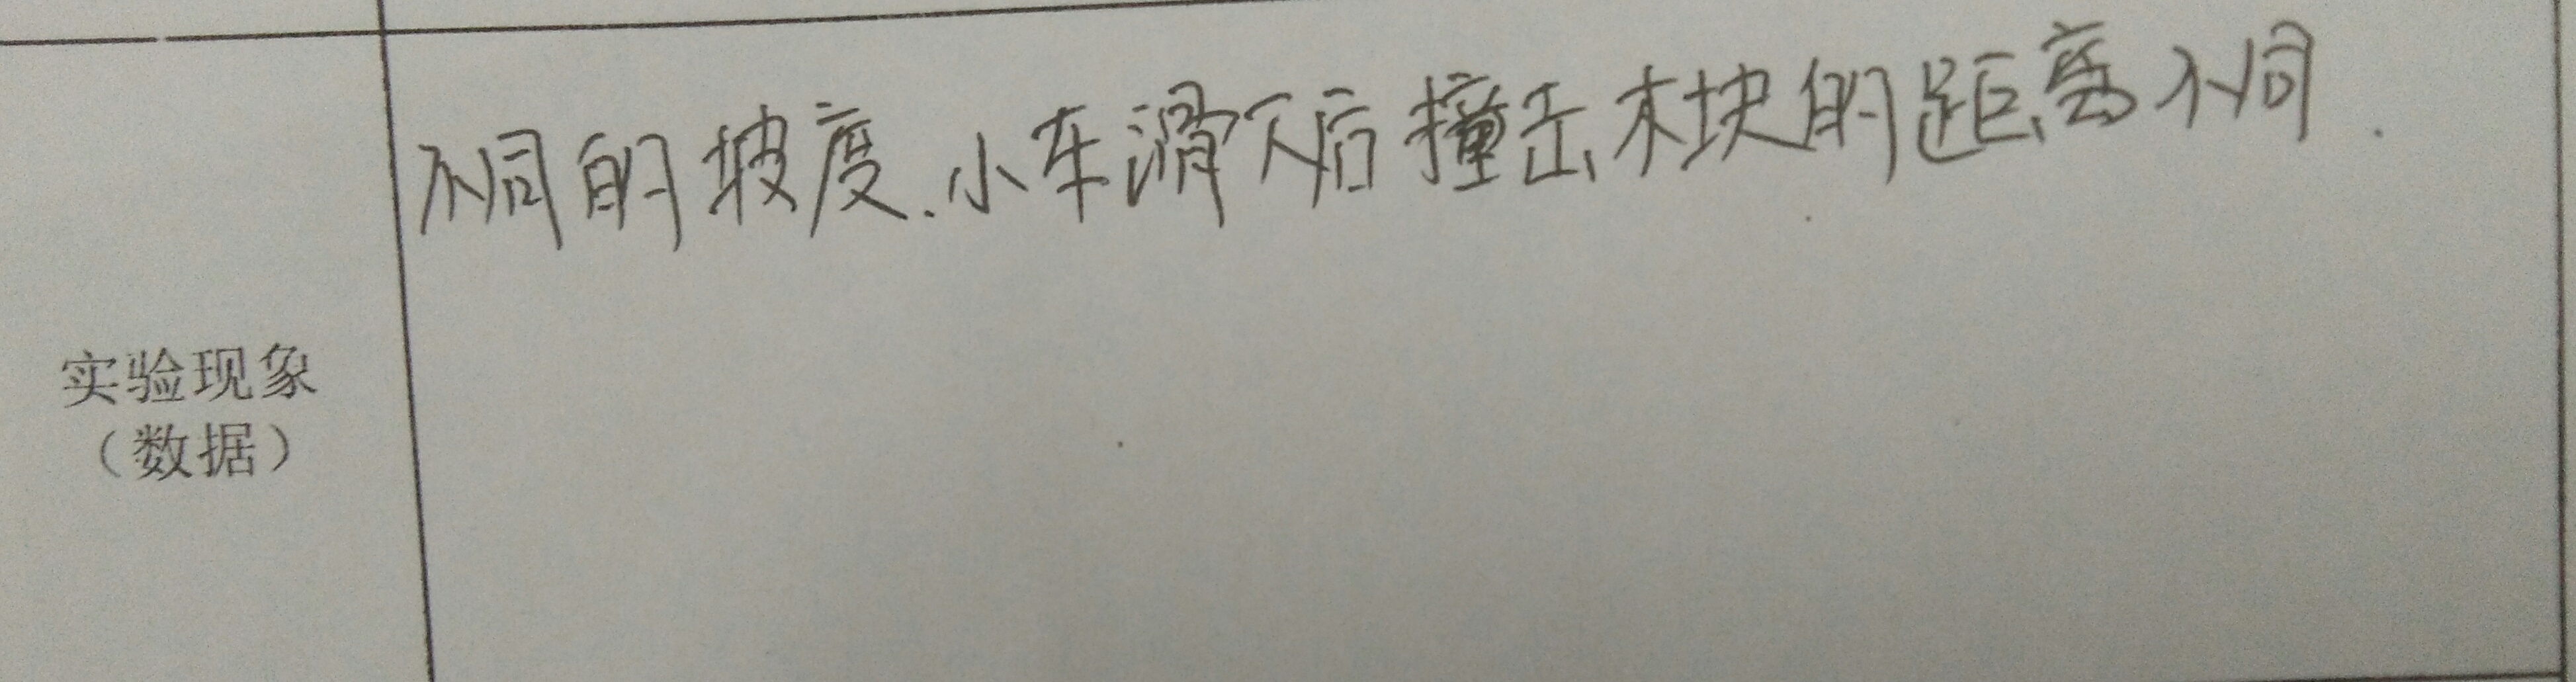 不同的坡度.小车滑下后撞击木块的距离不同.
实验现象
（数据）